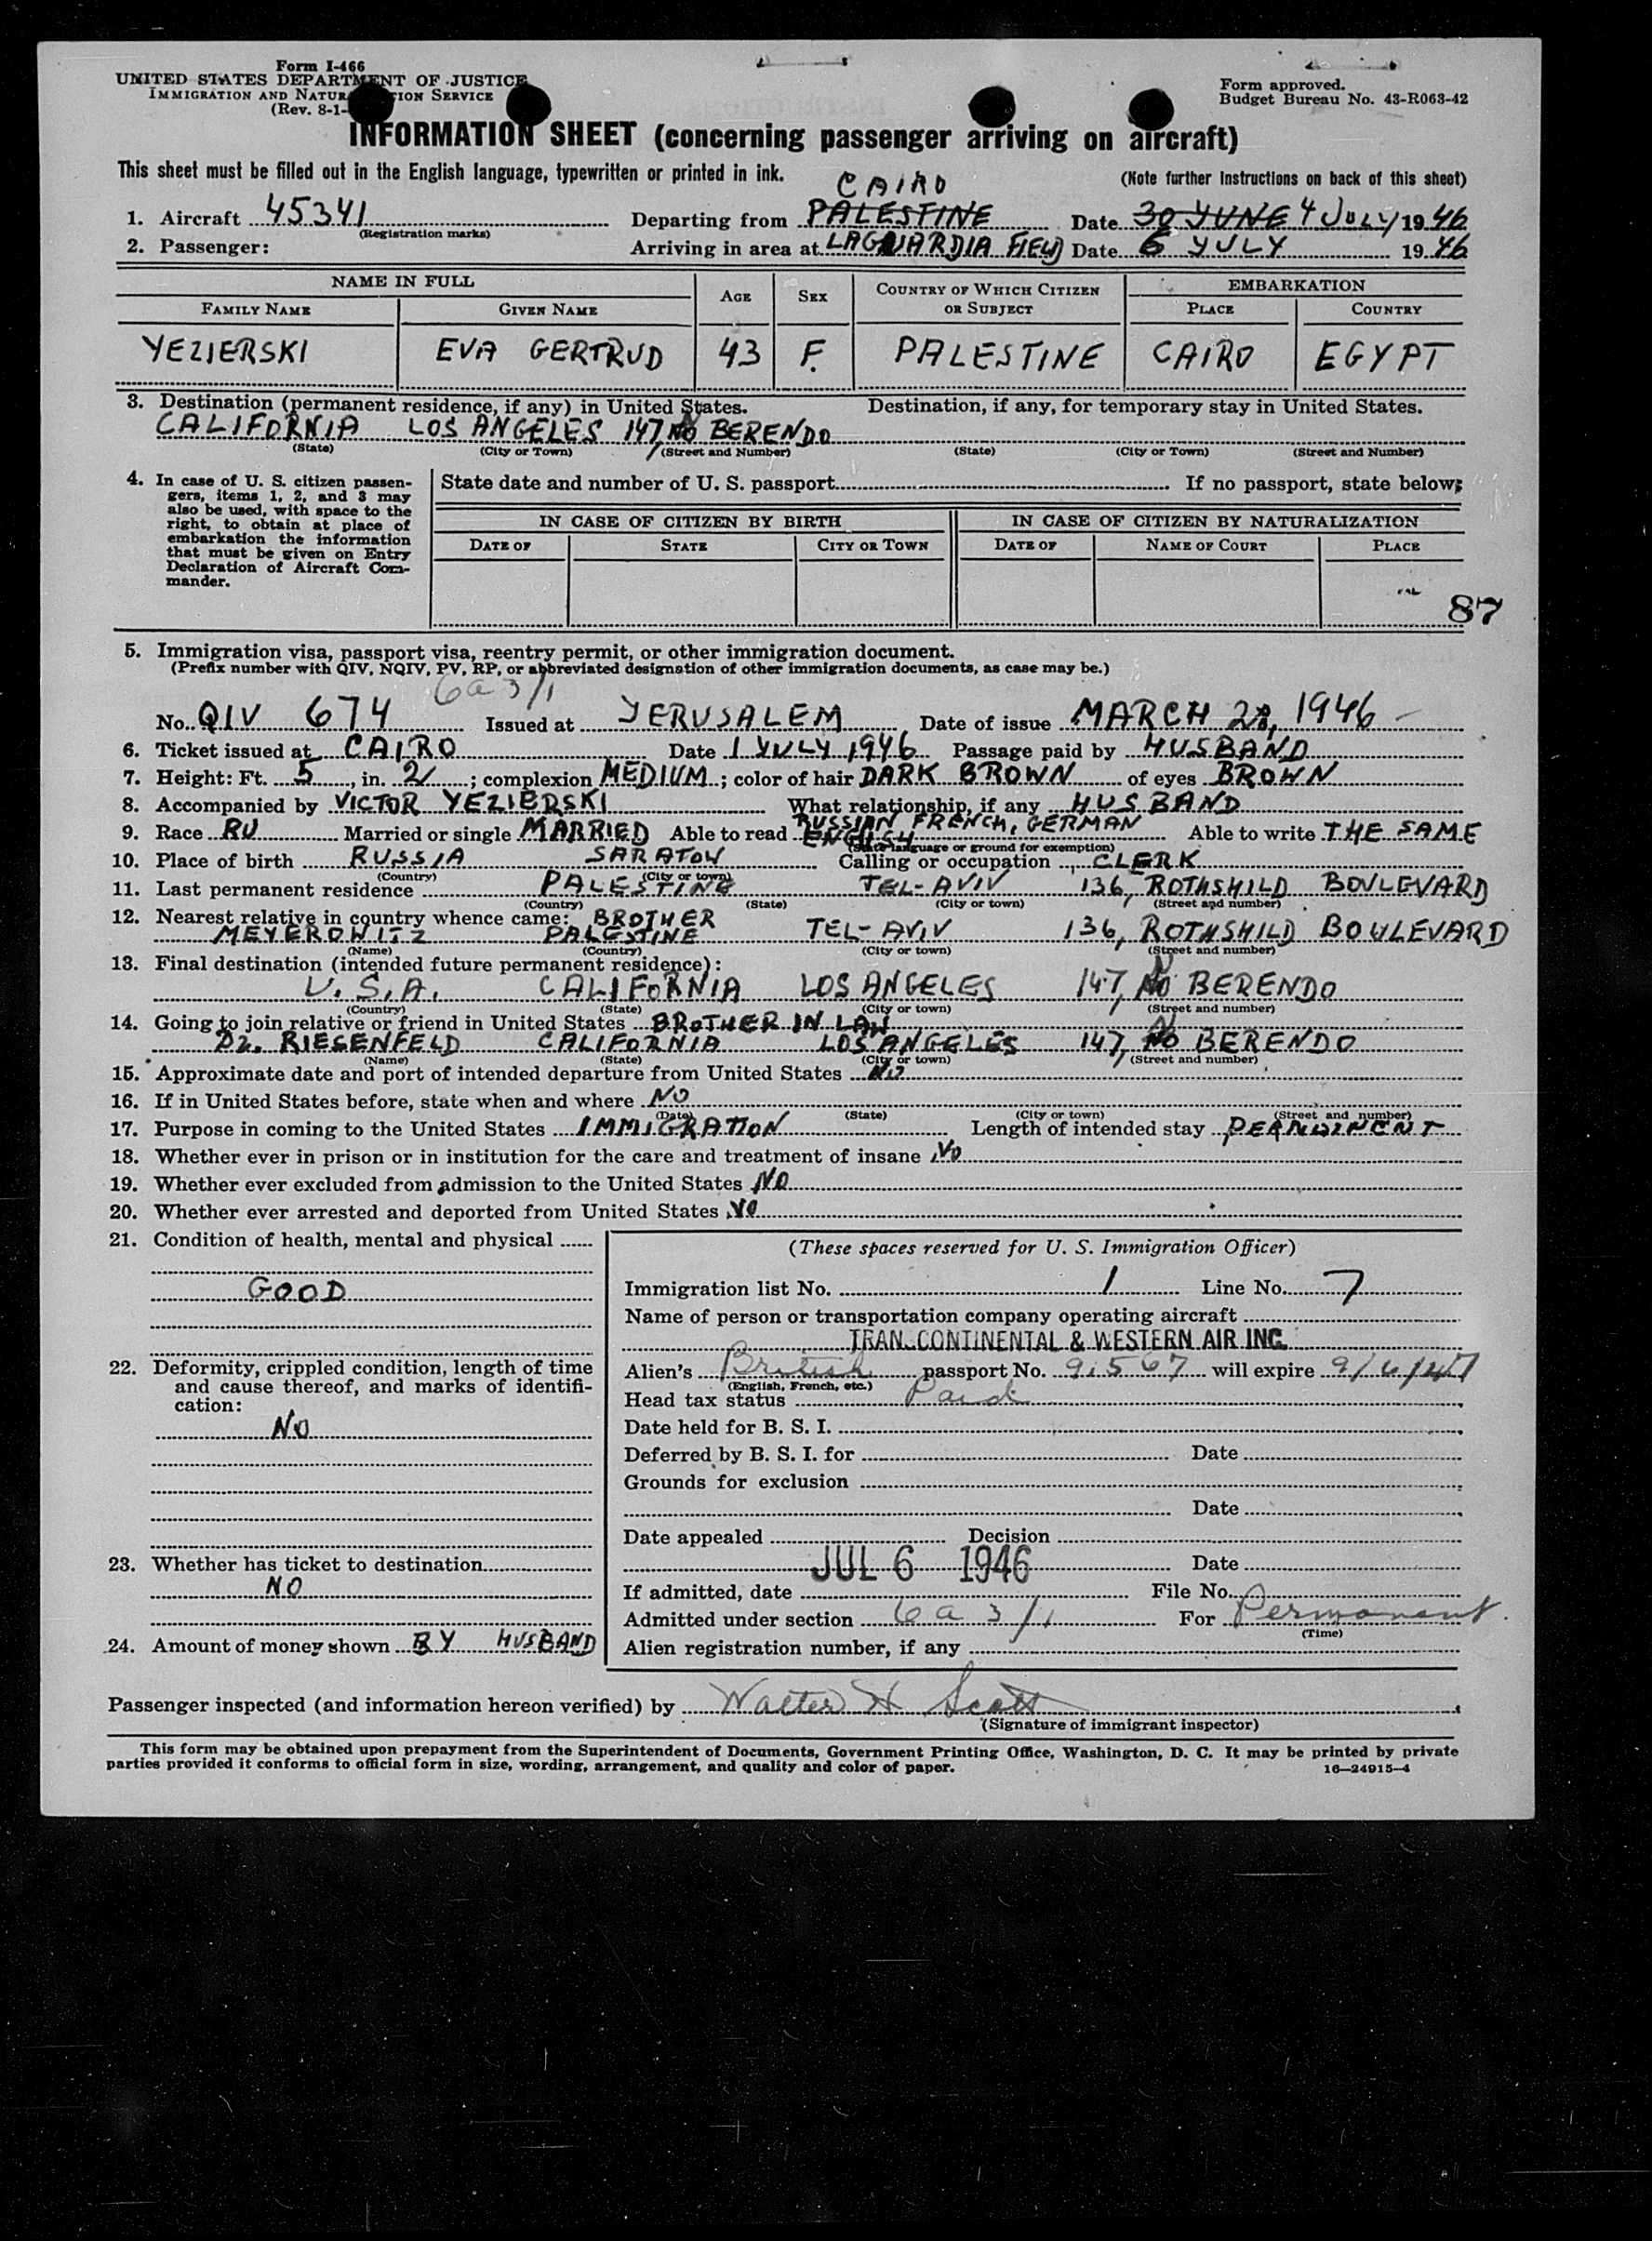 Form I-466
UNITED STATES DEPARTMENT OF JUSTICE
IMMIGRATION AND NATURALIZATION SERVICE
(Rev. 8-1-
Form approved.
Budget Bureau No. 43-R063-42
INFORMATION SHEET (concerning passenger arriving on aircraft)
This sheet must be filled out in the English language, typewritten or printed in ink.
(Note further instructions on back of this sheet)
CAIRO
1. Aircraft 45341 Departing from PALESTINE Date 30 YUNE 4 JULY 1946
(Registration marks)
2. Passenger: Arriving in area at LAGUARDIA FIELD Date 6 YULY 1946
NAME IN FULL AGE SEX COUNTRY OF WHICH CITIZEN OR SUBJECT EMBARKATION
FAMILY NAME GIVEN NAME PLACE COUNTRY
YEZIERSKI EVA GERTRUD 43 F. PALESTINE CAIRO EGYPT
3. Destination (permanent residence, if any) in United States. Destination, if any, for temporary stay in United States.
CALIFORNIA LOS ANGELES 147, NO BERENDO
(State) (City or Town) (Street and Number) (State) (City or Town) (Street and Number)
4. In case of U. S. citizen passengers, items 1, 2, and 3 may also be used, with space to the right, to obtain at place of embarkation the information that must be given on Entry Declaration of Aircraft Commander.
State date and number of U. S. passport If no passport, state below:
IN CASE OF CITIZEN BY BIRTH IN CASE OF CITIZEN BY NATURALIZATION
DATE OF STATE CITY OR TOWN DATE OF NAME OF COURT PLACE
87
5. Immigration visa, passport visa, reentry permit, or other immigration document.
(Prefix number with QIV, NQIV, PV, RP, or abbreviated designation of other immigration documents, as case may be.)
6a3/1
No. QIV 674 Issued at YERUSALEM Date of issue MARCH 28, 1946
6. Ticket issued at CAIRO Date 1 YULY 1946 Passage paid by HUSBAND
7. Height: Ft. 5, in. 2; complexion MEDIUM; color of hair DARK BROWN of eyes BROWN
8. Accompanied by VICTOR YEZIERSKI What relationship, if any HUSBAND
RUSSIAN FRENCH, GERMAN
9. Race RU Married or single MARRIED Able to read ENGLISH Able to write THE SAME
(State language or ground for exemption)
10. Place of birth RUSSIA SARATOW Calling or occupation CLERK
(Country) (City or town)
11. Last permanent residence PALESTINE TEL-AVIV 136, ROTHSHILD BOULEVARD
(Country) (State) (City or town) (Street and number)
12. Nearest relative in country whence came: BROTHER
MEYEROWITZ PALESTINE TEL-AVIV 136, ROTHSHILD BOULEVARD
(Name) (Country) (City or town) (Street and number)
13. Final destination (intended future permanent residence):
U.S.A. CALIFORNIA LOS ANGELES 147, NO BERENDO
(Country) (State) (City or town) (Street and number)
14. Going to join relative or friend in United States BROTHER IN LAW
DR. RIESENFELD CALIFORNIA LOS ANGELES 147, NO BERENDO
(Name) (State) (City or town) (Street and number)
15. Approximate date and port of intended departure from United States NO
16. If in United States before, state when and where NO
(Date) (State) (City or town) (Street and number)
17. Purpose in coming to the United States IMMIGRATION Length of intended stay PERMANENT
18. Whether ever in prison or in institution for the care and treatment of insane NO
19. Whether ever excluded from admission to the United States NO
20. Whether ever arrested and deported from United States NO
21. Condition of health, mental and physical
GOOD
22. Deformity, crippled condition, length of time and cause thereof, and marks of identification:
NO
23. Whether has ticket to destination
NO
24. Amount of money shown BY HUSBAND
(These spaces reserved for U. S. Immigration Officer)
Immigration list No. 1 Line No. 7
Name of person or transportation company operating aircraft
TRANSCONTINENTAL & WESTERN AIR INC.
Alien's British passport No. 91567 will expire 9/6/47
(English, French, etc.)
Head tax status Paid
Date held for B. S. I.
Deferred by B. S. I. for Date
Grounds for exclusion
Date
Date appealed Decision
JUL 6 1946 Date
If admitted, date File No.
Admitted under section 6a3/1 For Permanent
(Time)
Alien registration number, if any
Passenger inspected (and information hereon verified) by Walter H Scott
(Signature of immigrant inspector)
This form may be obtained upon prepayment from the Superintendent of Documents, Government Printing Office, Washington, D. C. It may be printed by private
parties provided it conforms to official form in size, wording, arrangement, and quality and color of paper. 16—24915-4